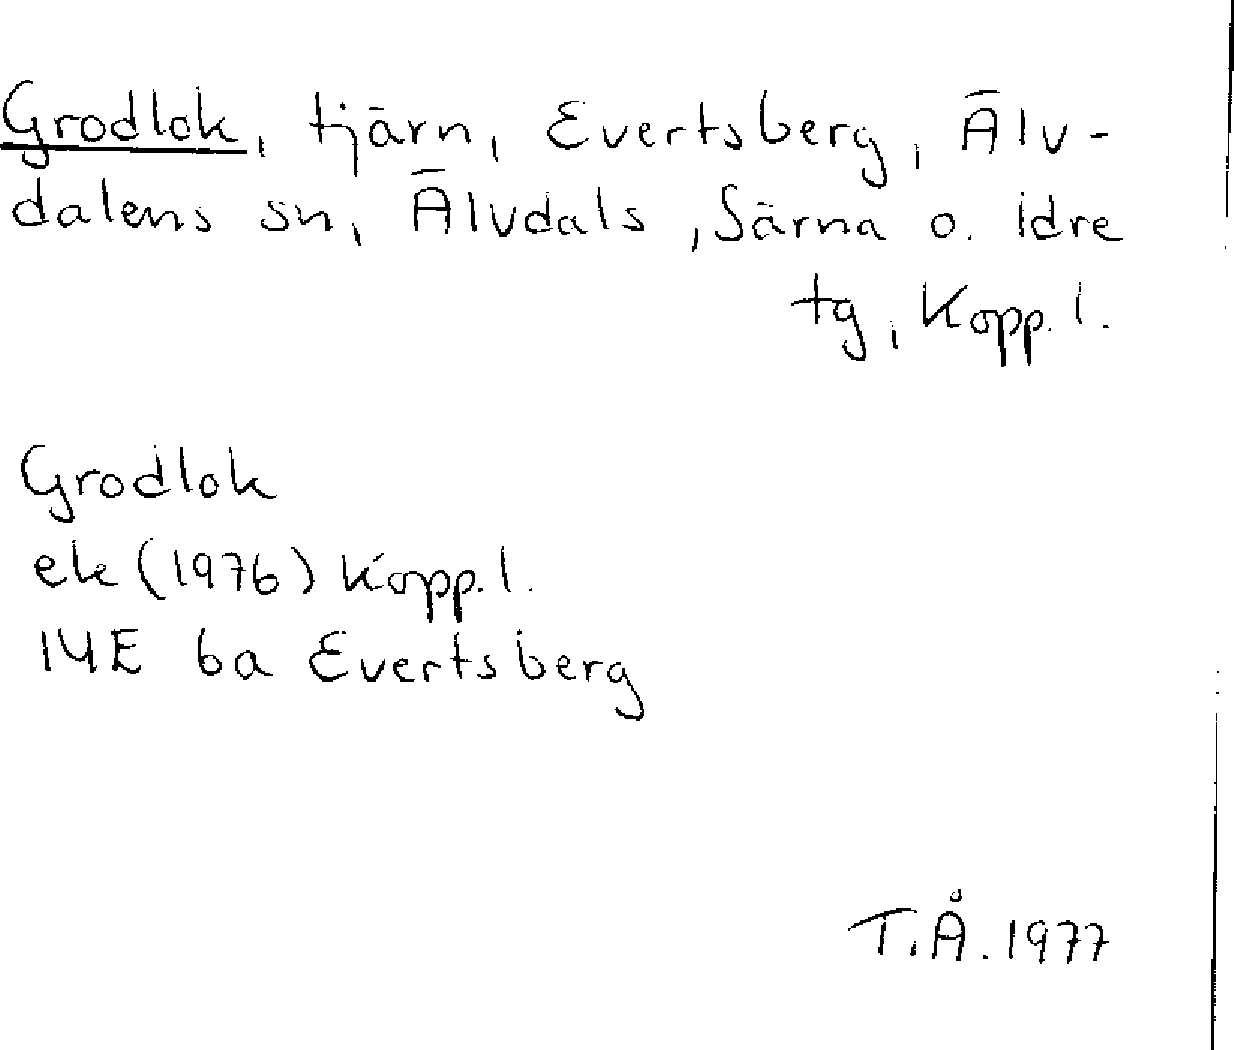 Grodlok, tjärn, Evertsberg, Älv-
dalens sn, Älvdals, Särna o. Idre
tg, Kopp. l.
Grodlok
ek (1976) Kopp. l.
14E 6a Evertsberg
T.Å. 1977